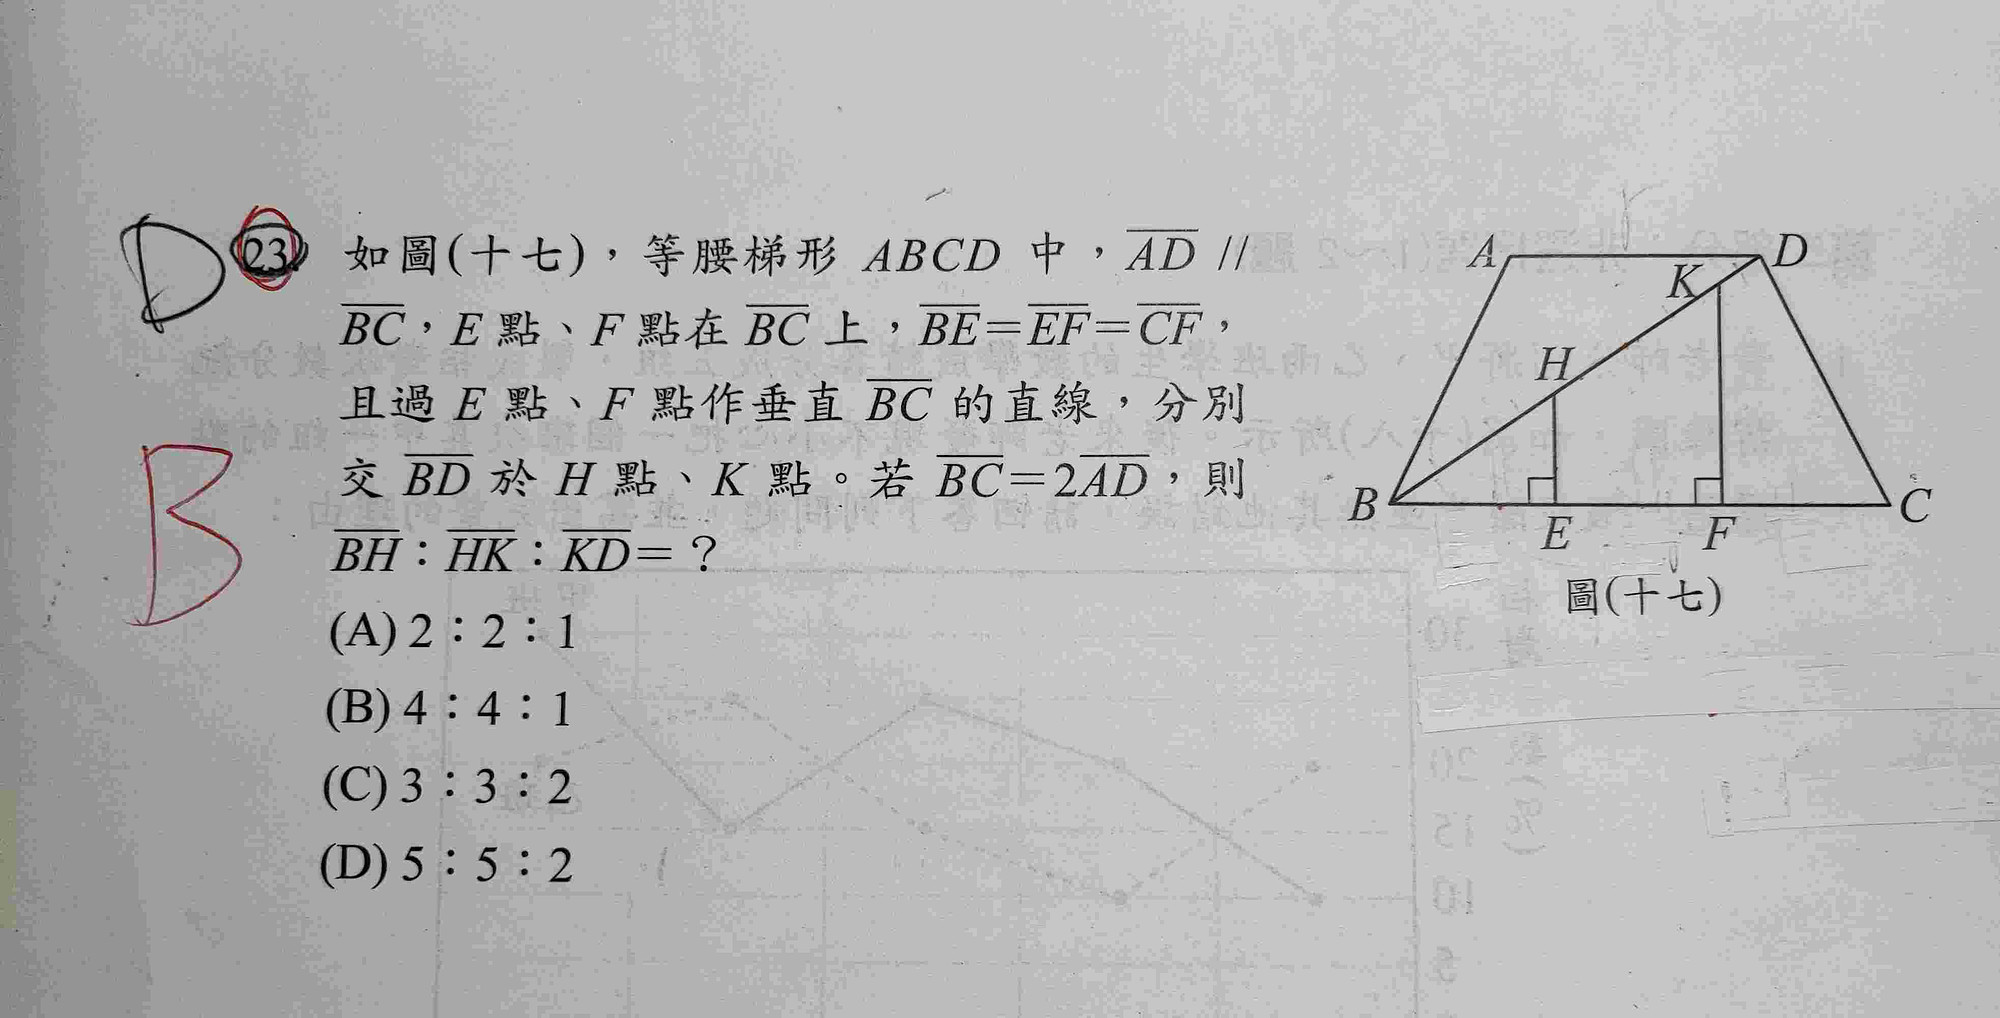 D
23. 如圖(十七)，等腰梯形 ABCD 中，AD //
BC，E 點、F 點在 BC 上，BE＝EF＝CF，
且過 E 點、F 點作垂直 BC 的直線，分別
交 BD 於 H 點、K 點。若 BC＝2AD，則
BH：HK：KD＝？
B
(A) 2：2：1
(B) 4：4：1
(C) 3：3：2
(D) 5：5：2
A
D
K
H
B
E
F
C
圖(十七)